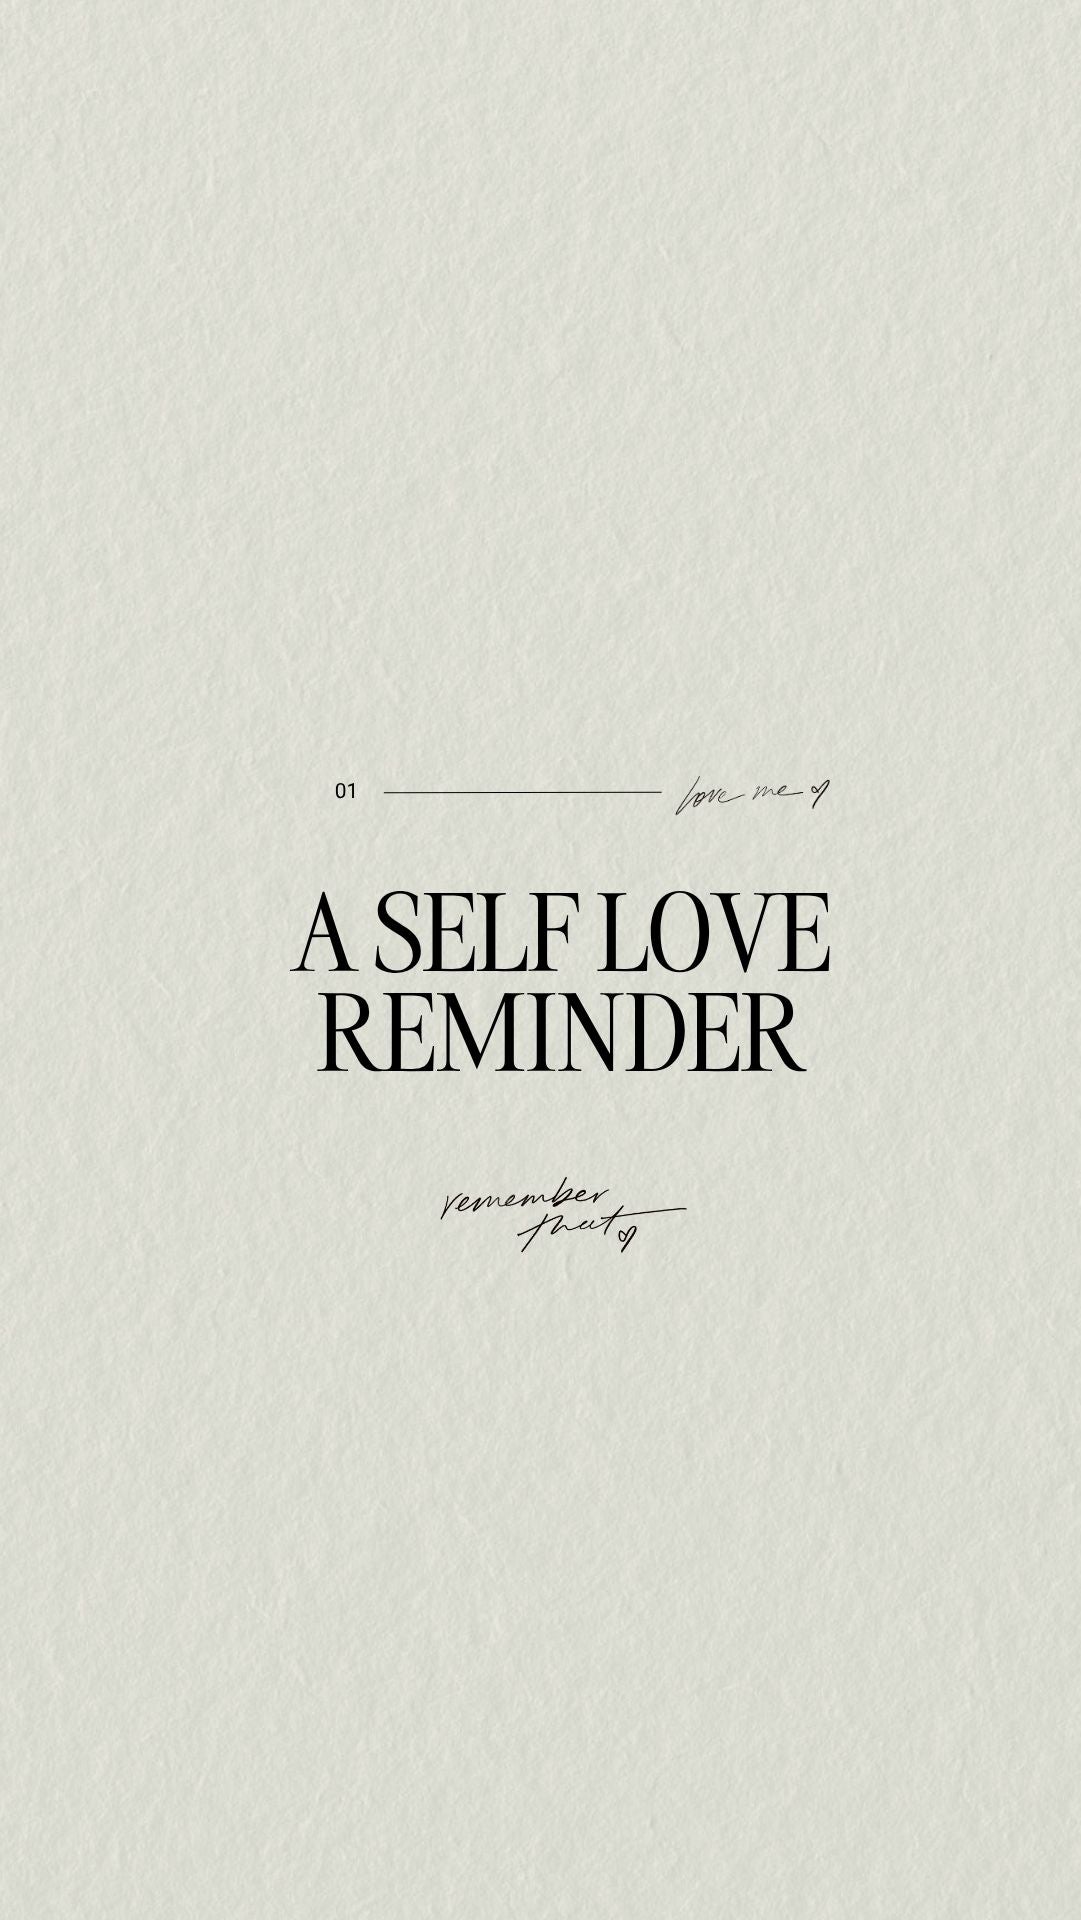 01 love me
A SELF LOVE
REMINDER
remember
that